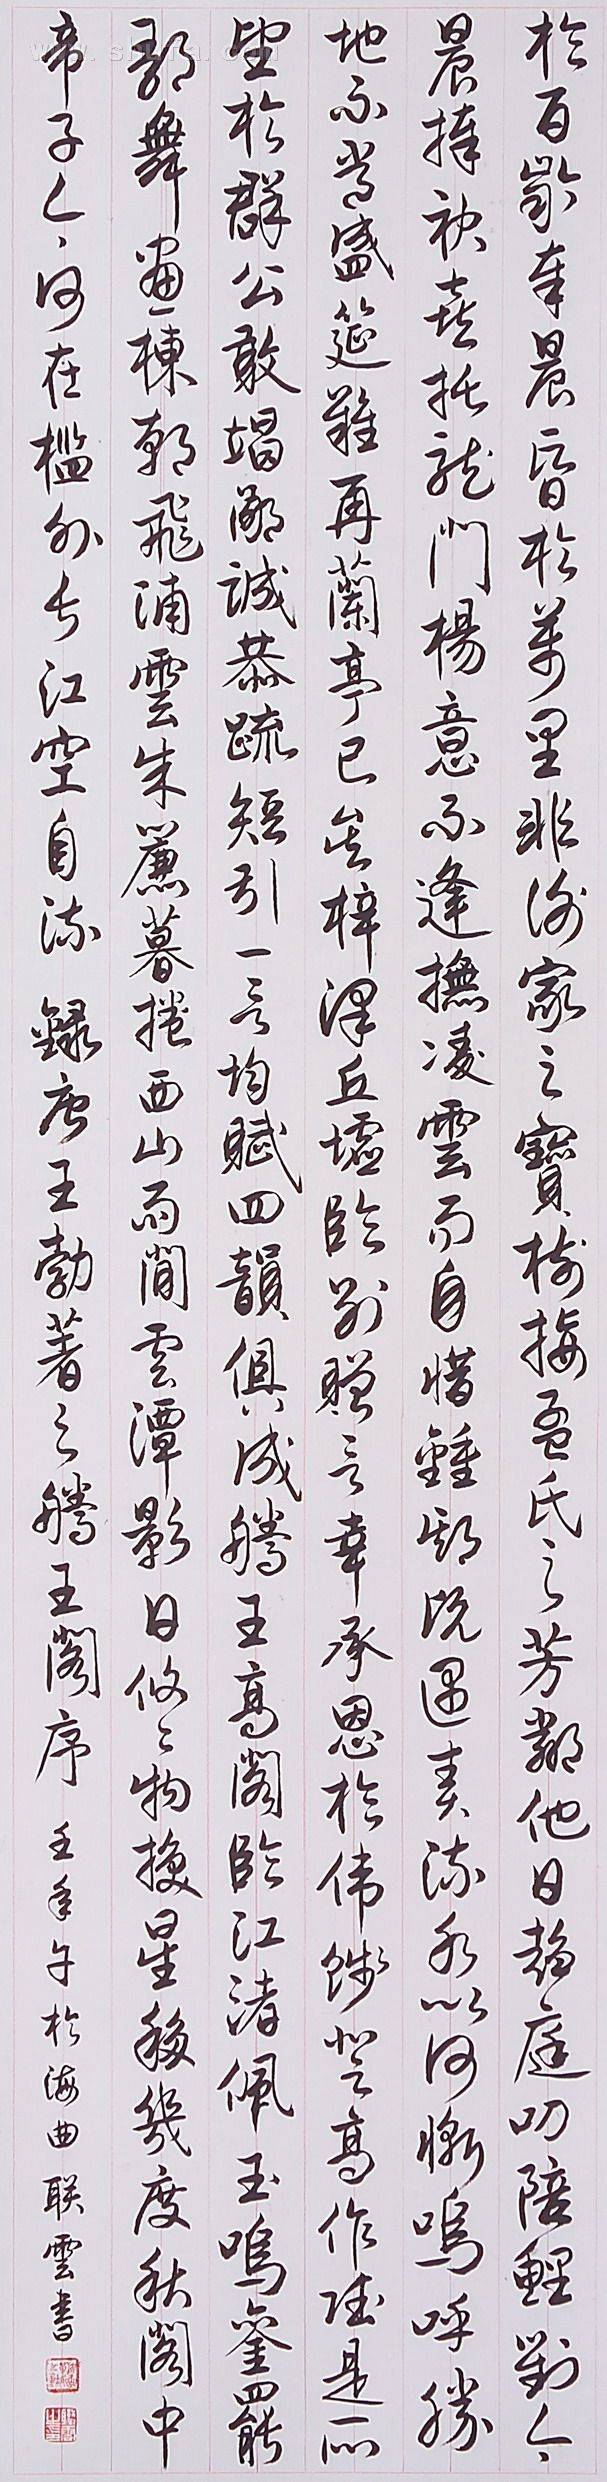 www.shufa.com
於百齡奉晨昏於萬里非謝家之寶樹接孟氏之芳鄰他日趨庭叨陪鯉對今
晨捧袂喜托龍門楊意不逢撫凌雲而自惜鍾期既遇奏流水以何慚嗚呼勝
地不常盛筵難再蘭亭已矣梓澤丘墟臨別贈言幸承恩於偉餞登高作賦是所
望於群公敢竭鄙誠恭疏短引一言均賦四韻俱成滕王高閣臨江渚佩玉鳴鑾罷
歌舞畫棟朝飛浦雲朱簾暮捲西山雨閒雲潭影日悠〻物換星移幾度秋閣中
帝子今何在檻外長江空自流 錄唐王勃著之滕王閣序 壬年午於海曲联雲書